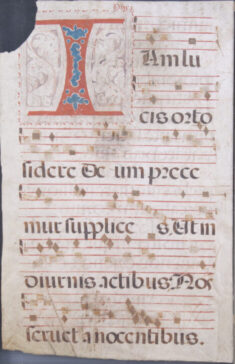 I Am lu
cis orto
sidere De um prece
mur supplice s. Ut in
diurnis actibus. Nos
servet a nocentibus.